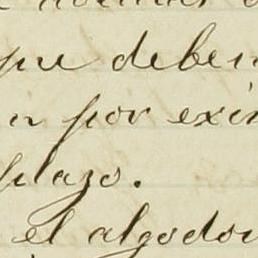 que deben
n por exim
plazo.
el algodon